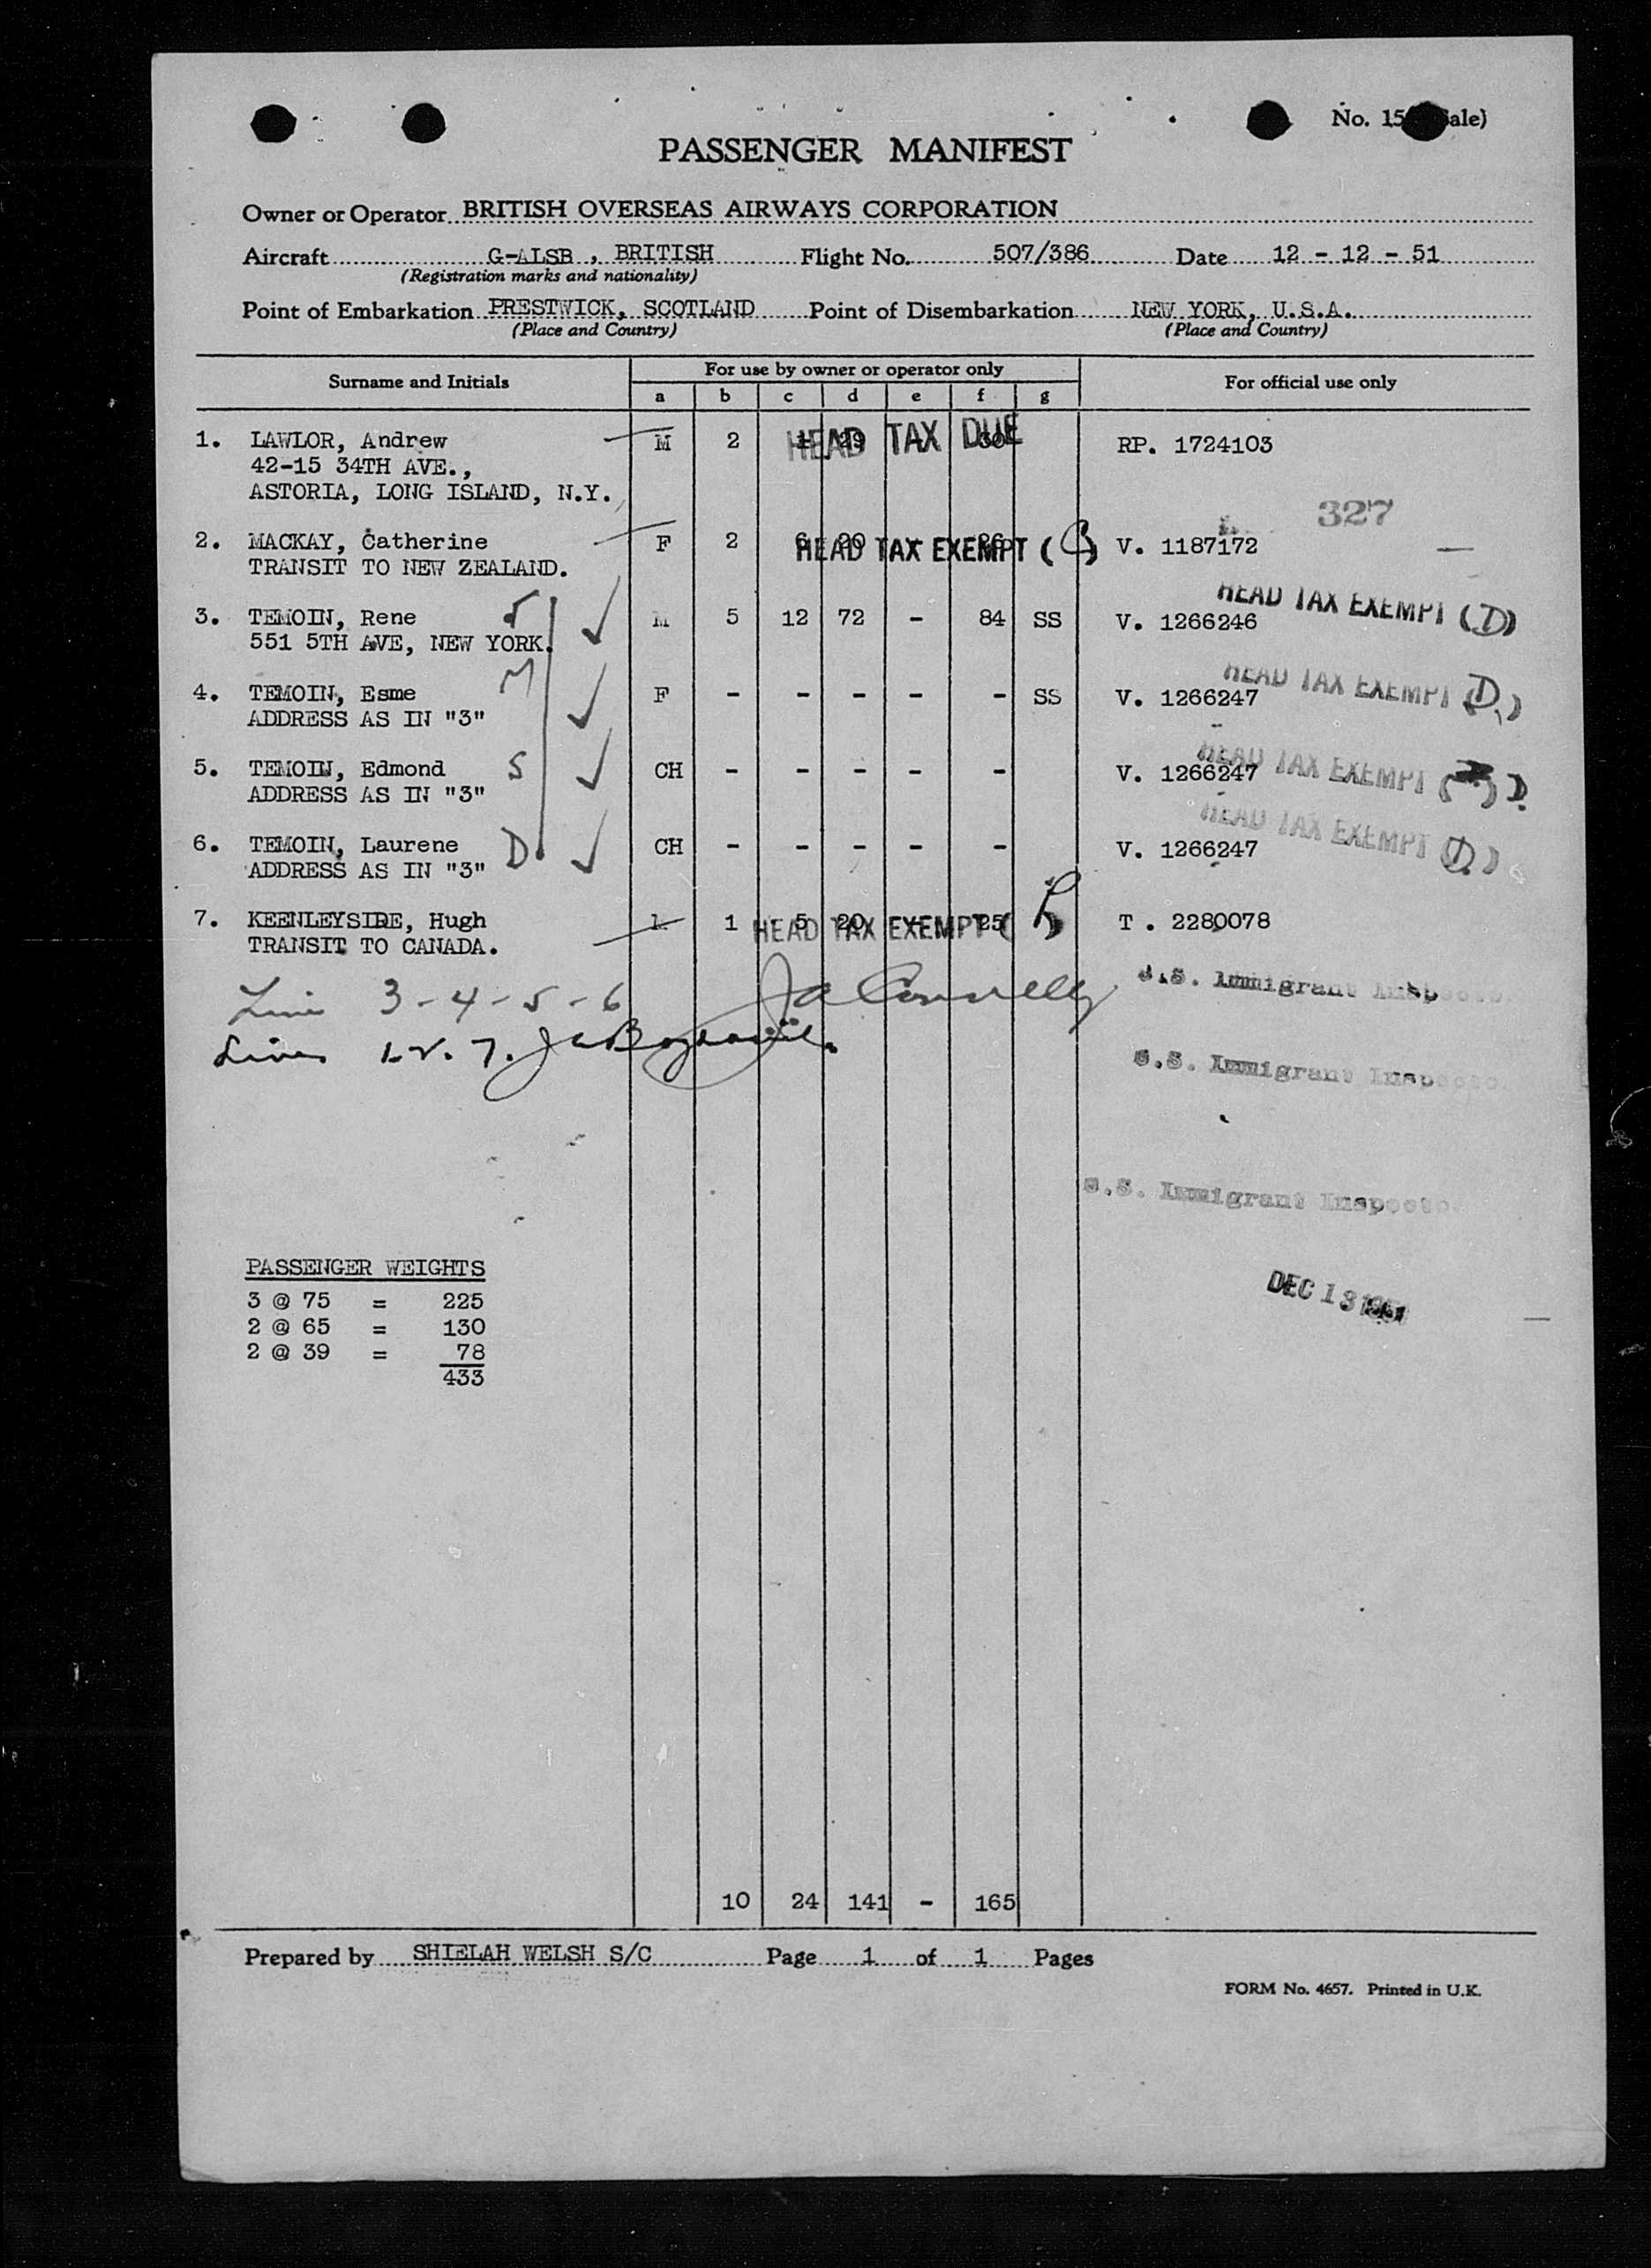 No. 15 ale)
PASSENGER MANIFEST
Owner or Operator BRITISH OVERSEAS AIRWAYS CORPORATION
Aircraft G-ALSB , BRITISH Flight No. 507/386 Date 12 - 12 - 51
(Registration marks and nationality)
Point of Embarkation PRESTWICK, SCOTLAND Point of Disembarkation NEW YORK, U.S.A.
(Place and Country) (Place and Country)
Surname and Initials For use by owner or operator only For official use only
a b c d e f g
1. LAWLOR, Andrew M 2 1 29 30 HEAD TAX DUE RP. 1724103
42-15 34TH AVE.,
ASTORIA, LONG ISLAND, N.Y.
327
2. MACKAY, Catherine F 2 6 20 - 26 HEAD TAX EXEMPT ( ) V. 1187172
TRANSIT TO NEW ZEALAND.
HEAD TAX EXEMPT (D)
3. TEMOIN, Rene M 5 12 72 - 84 SS V. 1266246
551 5TH AVE, NEW YORK.
HEAD TAX EXEMPT (D)
4. TEMOIN, Esme M F - - - - - SS V. 1266247
ADDRESS AS IN "3"
HEAD TAX EXEMPT ( ) D.
5. TEMOIN, Edmond S CH - - - - - V. 1266247
ADDRESS AS IN "3"
HEAD TAX EXEMPT (D.)
6. TEMOIN, Laurene D CH - - - - - V. 1266247
ADDRESS AS IN "3"
7. KEENLEYSIDE, Hugh M 1 5 20 - 25 HEAD TAX EXEMPT ( ) T . 2280078
TRANSIT TO CANADA.
Line 3-4-5-6 J A Connelly U.S. Immigrant Inspector
Lines 1-2-7.
U.S. Immigrant Inspector
U.S. Immigrant Inspector
PASSENGER WEIGHTS
DEC 13 1951
3 @ 75 = 225
2 @ 65 = 130
2 @ 39 = 78
433
10 24 141 - 165
Prepared by SHIELAH WELSH S/C Page 1 of 1 Pages
FORM No. 4657. Printed in U.K.